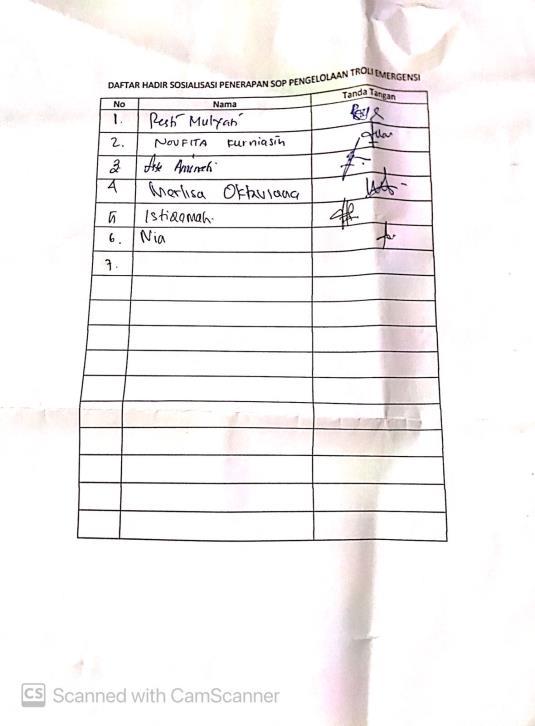 DAFTAR HADIR SOSIALISASI PENERAPAN SOP PENGELOLAAN TROLI EMERGENSI
No Nama Tanda Tangan
1. Resti Mulyati
2. NOVFITA kurniasih
3
4 Marlisa Oktaviana
5 Istiqamah.
6. Nia
7.
CS Scanned with CamScanner